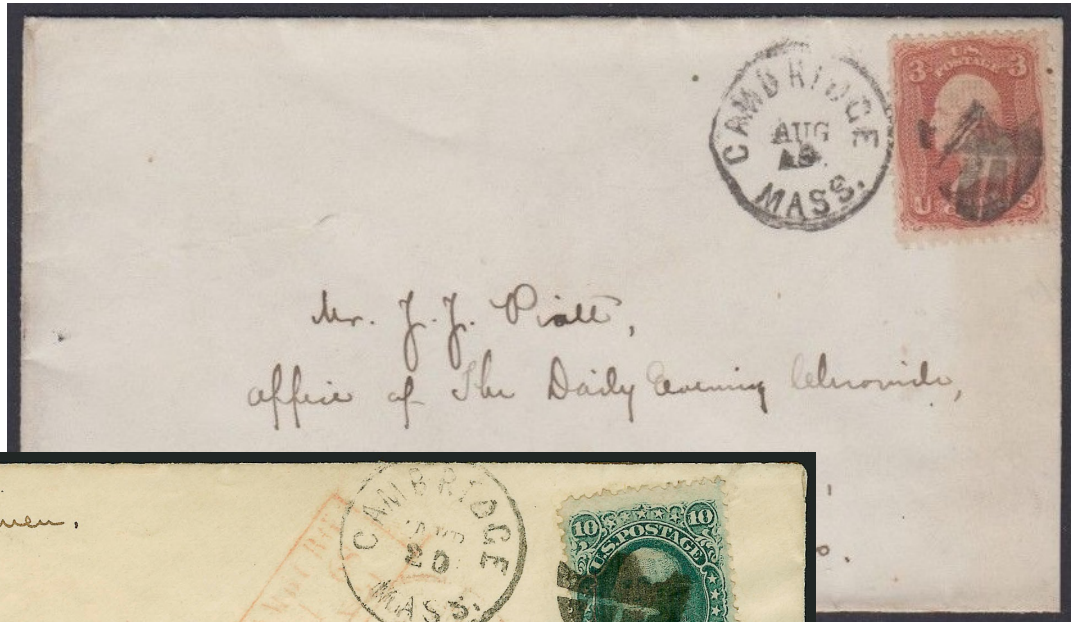 CAMBRIDGE
AUG
MASS.
U.S.
POSTAGE
3 3
U S
Mr. J. J. Piatt,
Office of The Daily Evening Chronicle,
o.
CAMBRIDGE
20
MASS.
10 10
U.S. POSTAGE